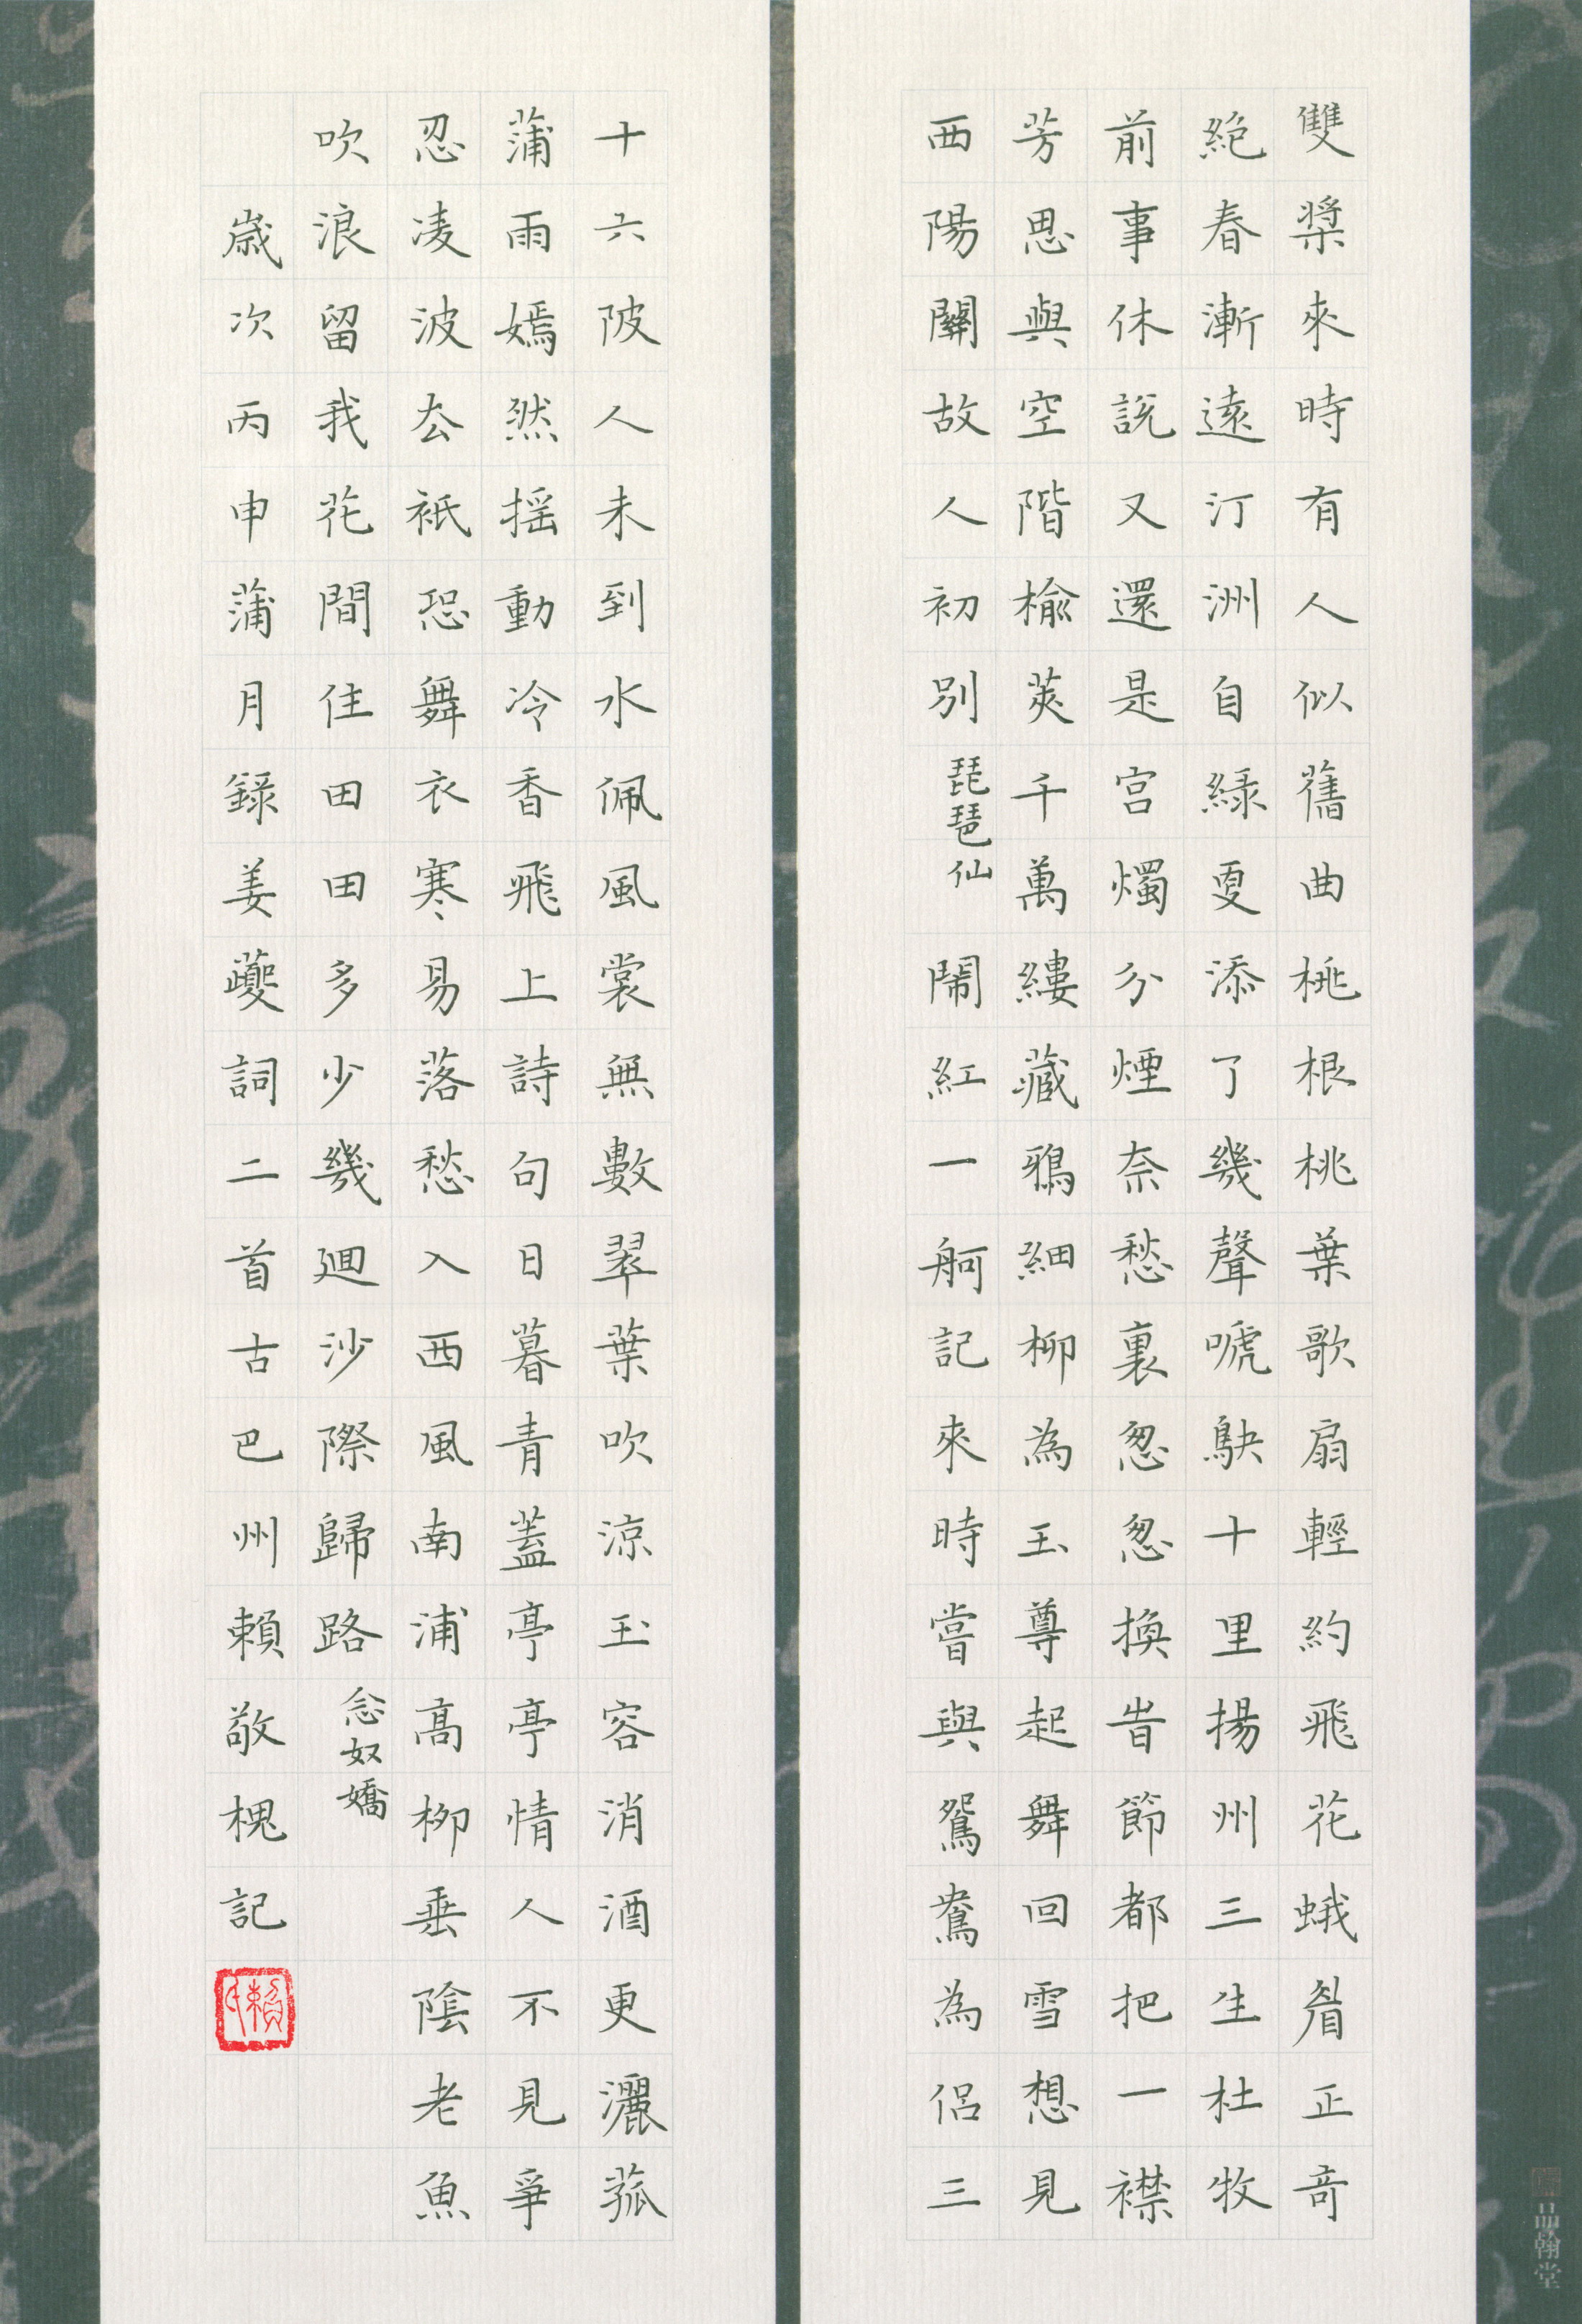 雙槳來時有人似舊曲桃根桃葉歌扇輕約飛花蛾眉正奇
絕春漸遠汀洲自綠更添了幾聲嗁鴃十里揚州三生杜牧
前事休說又還是宮燭分煙奈愁裏忽忽換昔節都把一襟
芳思與空階榆莢千萬縷藏鴉細柳為玉尊起舞回雪想見
西陽關故人初別
琵琶仙
鬧紅一舸記來時嘗與鴛鴦為侶三
十六陂人未到水佩風裳無數翠葉吹涼玉容消酒更灑菰
蒲雨嫣然搖動冷香飛上詩句日暮青蓋亭亭情人不見爭
忍凌波去衹恐舞衣寒易落愁入西風南浦高柳垂陰老魚
吹浪留我花間住田田多少幾迴沙際歸路
念奴嬌
歲次丙申蒲月錄姜夔詞二首古巴州賴敬槐記
賴氏
品翰堂